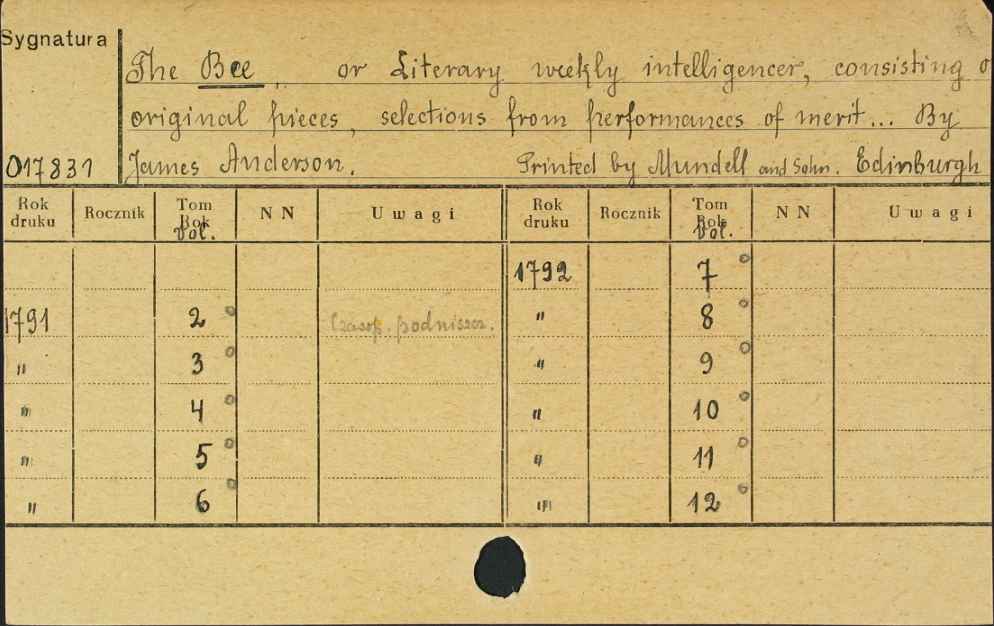 Sygnatura
The Bee, or Literary weekly intelligencer, consisting o
original pieces, selections from performances of merit... By
017831 James Anderson. Printed by Mundell and Sohn. Edinburgh
Rok druku Rocznik Tom Rok Vol. NN Uwagi Rok druku Rocznik Tom Rok Vol. NN Uwagi
1792 7
1791 2 Czasop. podniszcz. " 8
" 3 " 9
" 4 " 10
" 5 " 11
" 6 " 12